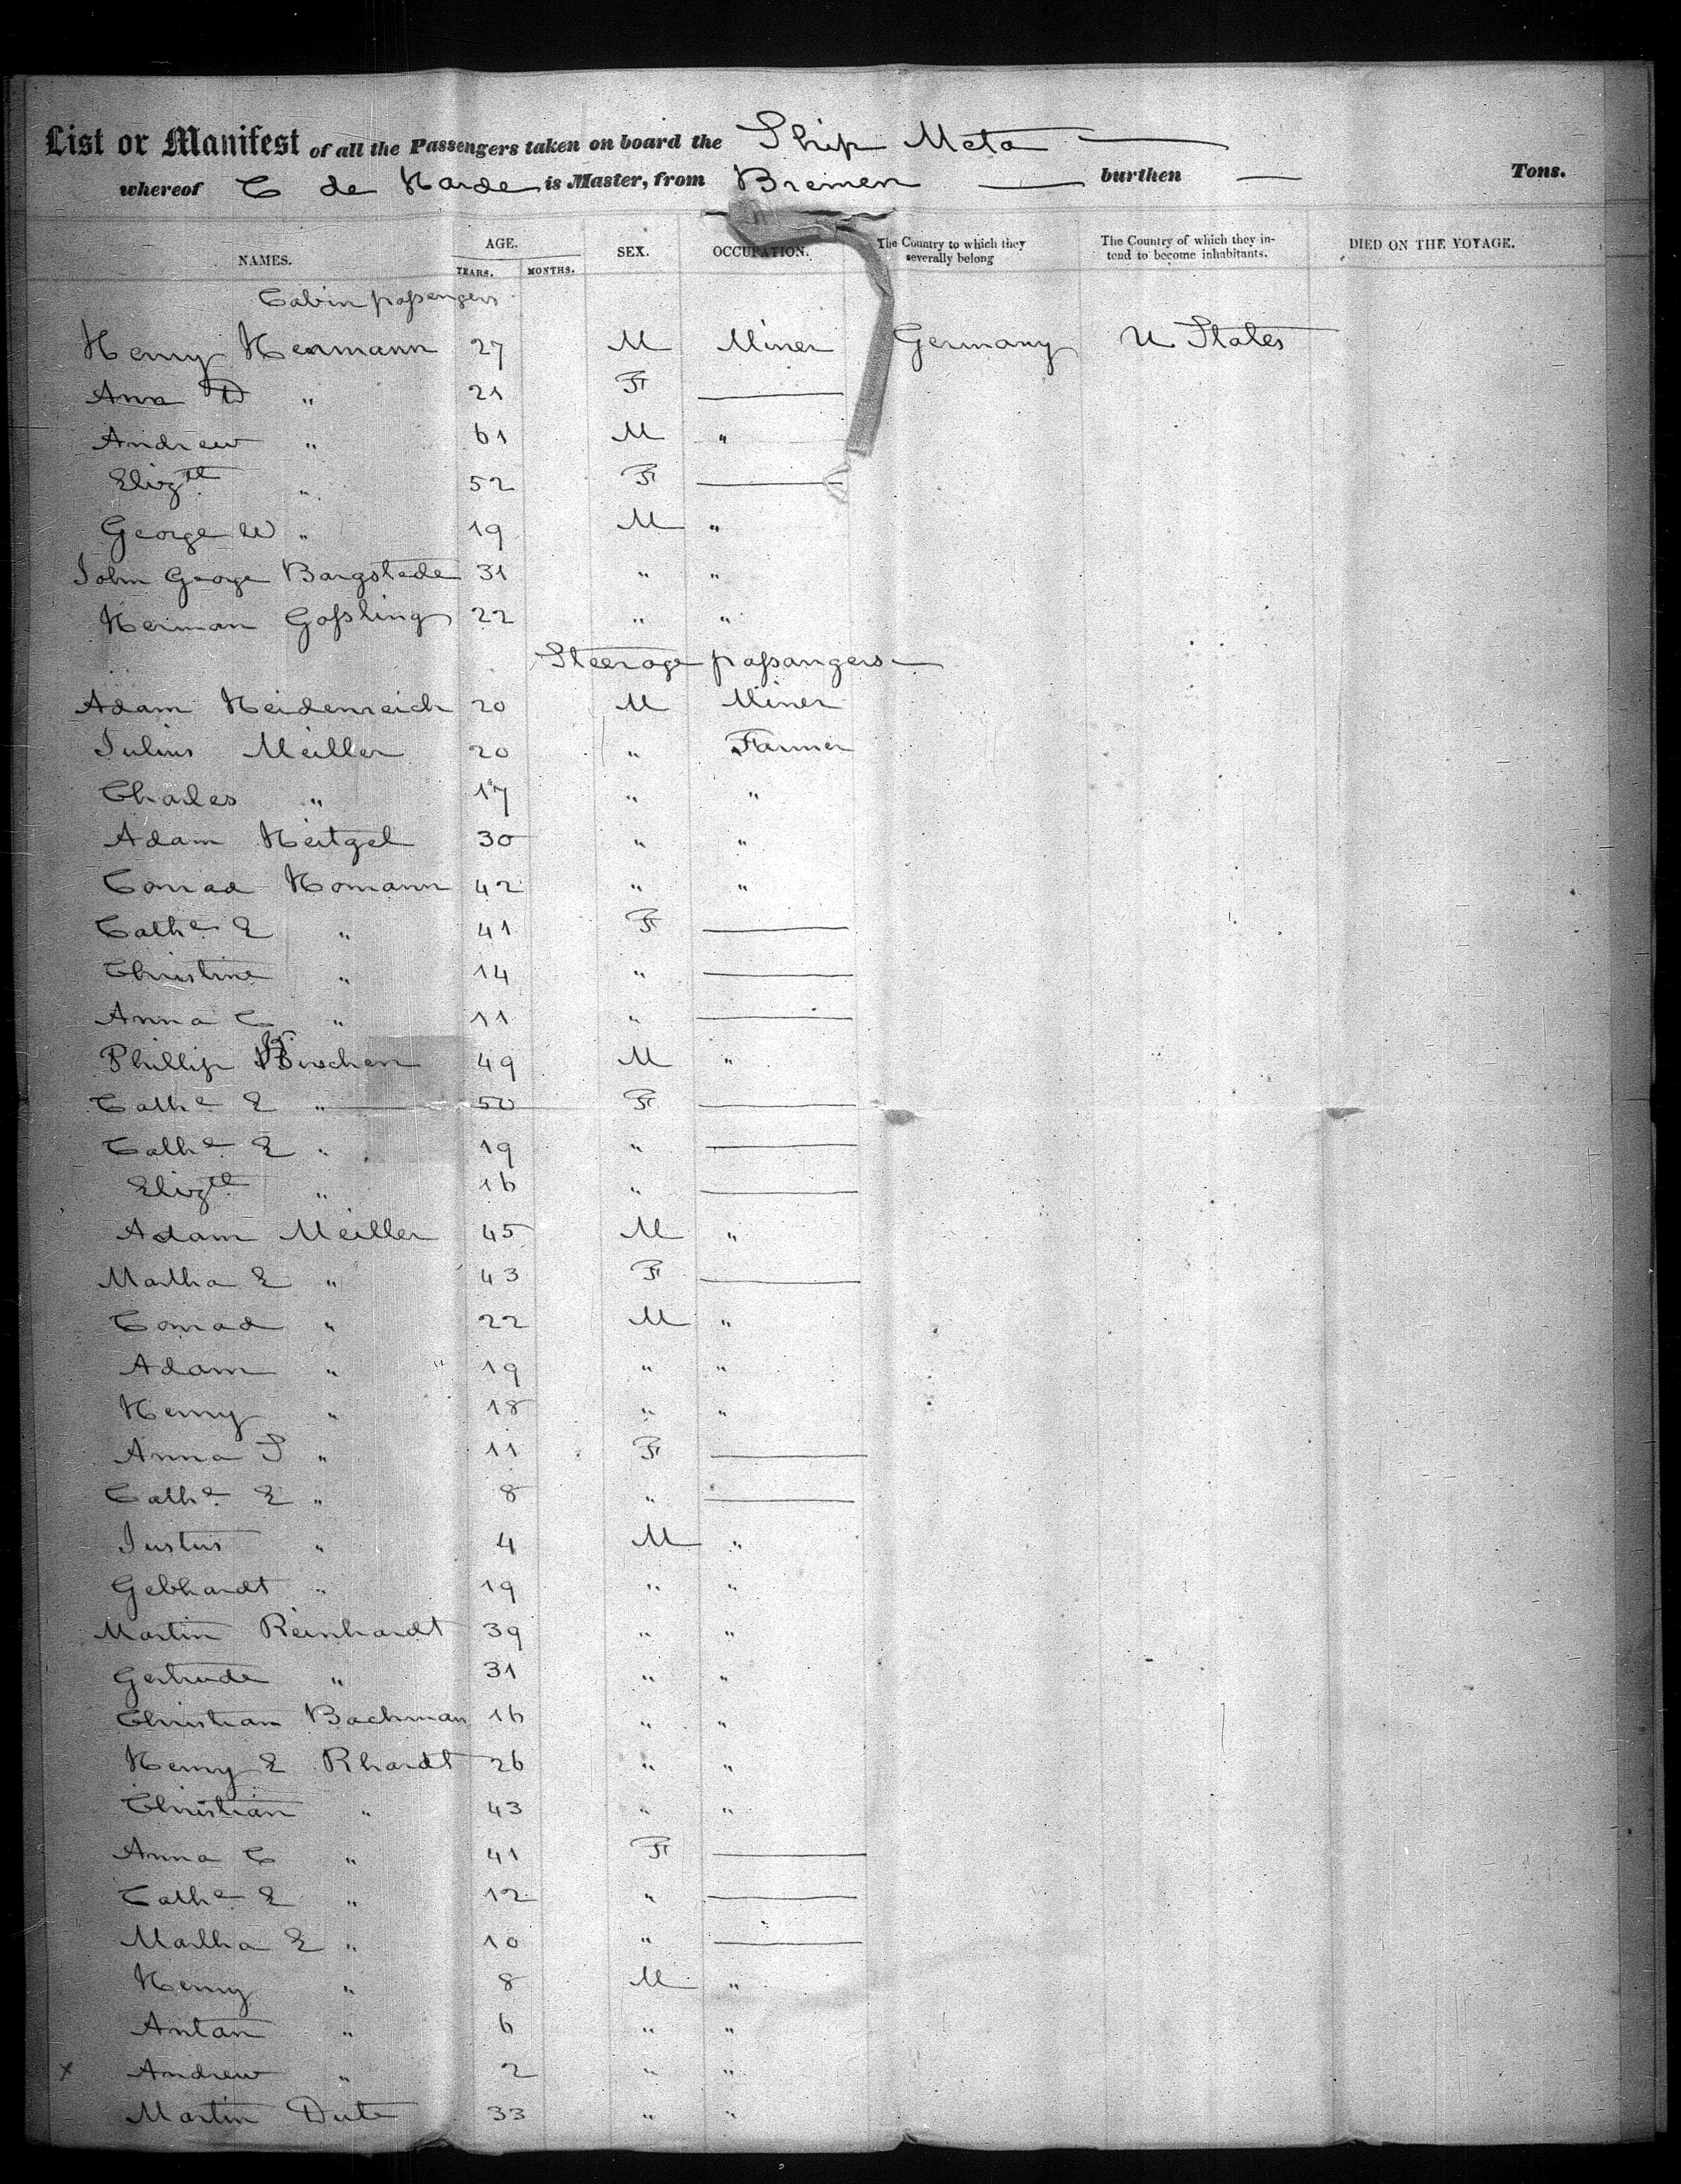 List or Manifest of all the Passengers taken on board the Ship Meta
whereof C de Harde is Master, from Bremen burthen Tons.
NAMES. AGE. YEARS. MONTHS. SEX. OCCUPATION. The Country to which they severally belong The Country of which they intend to become inhabitants. DIED ON THE VOYAGE.
Cabin passengers
Henry Hermann 27 M Miner Germany U States
Ann D " 21 F
Andrew " 61 M "
Elizth " 52 F
George W " 19 M "
John George Bargstede 31 " "
Herman Gossling 22 " "
Steerage passangers
Adam Heidenreich 20 M Miner
Julius Meiller 20 " Farmer
Charles " 17 " "
Adam Heitzel 30 " "
Conrad Homann 42 " "
Cathe E " 41 F
Christine " 14 "
Anna C " 11 "
Phillip 49 M "
Cathe E " 50 F
Cathe E " 19 "
Elizth " 16 "
Adam Meiller 45 M "
Martha E " 43 F
Conrad " 22 M "
Adam " " 19 " "
Henry " 18 " "
Anna S " 11 F
Cathe E " 8 "
Justus " 4 M "
Gebhardt " 19 " "
Martin Reinhardt 39 " "
Gertrude " 31 " "
Christian Bachman 16 " "
Henry E Rhardt 26 " "
Christian " 43 " "
Anna C " 41 F
Cathe E " 12 "
Martha E " 10 "
Henry " 8 M "
Antan " 6 " "
x Andrew " 2 " "
Martin Dute 33 " "